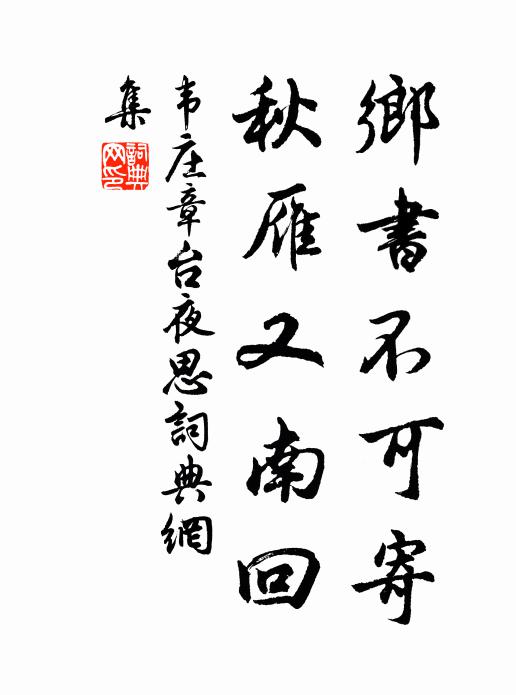 鄉書不可寄
秋雁又南回
韦庄章台夜思詞典網
集
詞典網印